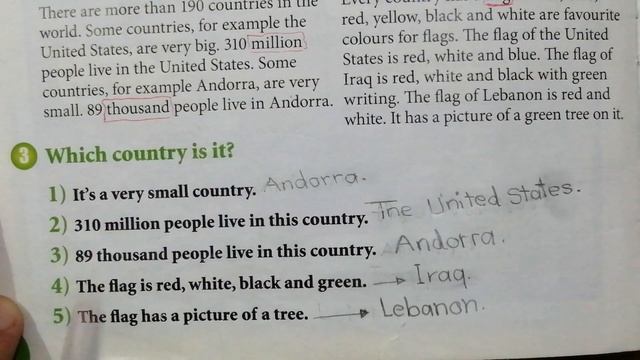 There are more than 190 countries in the
world. Some countries, for example the
United States, are very big. 310 million
people live in the United States. Some
countries, for example Andorra, are very
small. 89 thousand people live in Andorra.
red, yellow, black and white are favourite
colours for flags. The flag of the United
States is red, white and blue. The flag of
Iraq is red, white and black with green
writing. The flag of Lebanon is red and
white. It has a picture of a green tree on it.
3 Which country is it?
1) It's a very small country. Andorra.
2) 310 million people live in this country. The United States.
3) 89 thousand people live in this country. Andorra.
4) The flag is red, white, black and green. → Iraq.
5) The flag has a picture of a tree. → Lebanon.